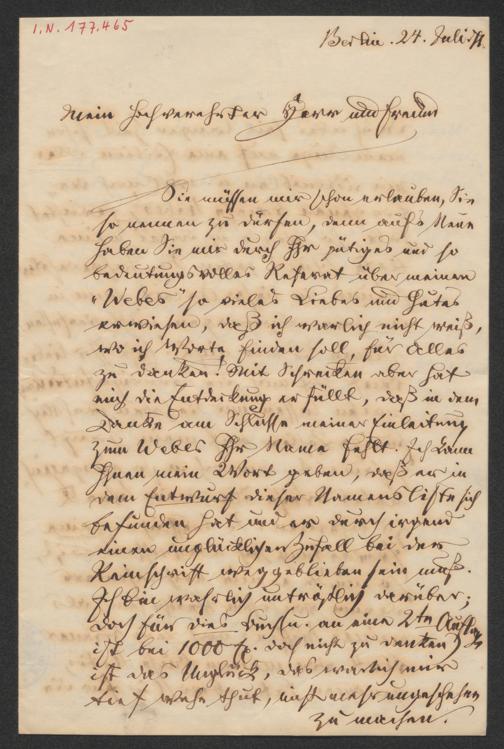 I.N. 177.465
Berlin. 24. Juli 71.
Mein hochverehrter Herr und Freund
Sie müssen mir schon erlauben, Sie
so nennen zu dürfen, denn auf's Neue
haben Sie mir durch Ihr gütiges und so
bedeutungsvolles Referat über meinen
"Weber" so vieles Liebes und Gutes
erwiesen, daß ich warlich nicht weiß,
wo ich Worte finden soll, für Alles
zu danken! Mit Schrecken aber hat
mich die Entdeckung erfüllt, daß in dem
Danke am Schlusse meiner Einleitung
zum Weber Ihr Name fehlt. Ich kann
Ihnen mein Wort geben, daß er in
dem Entwurf dieser Namensliste sich
befunden hat und er durch irgend
einen unglücklichen Zufall bei der
Reinschrift weggeblieben sein muß.
Ich bin wahrlich untröstlich darüber;
doch für dies Buch (u. an eine 2te Auflage
ist bei 1000 Ex. doch nicht zu denken)
ist das Unglück, das warlich mir
tief wehe thut, nicht mehr ungeschehen
zu machen.